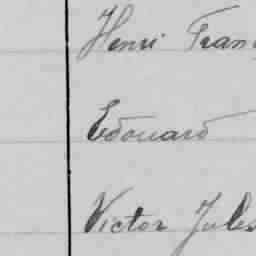 Henri Fran
Edouard
Victor Jules